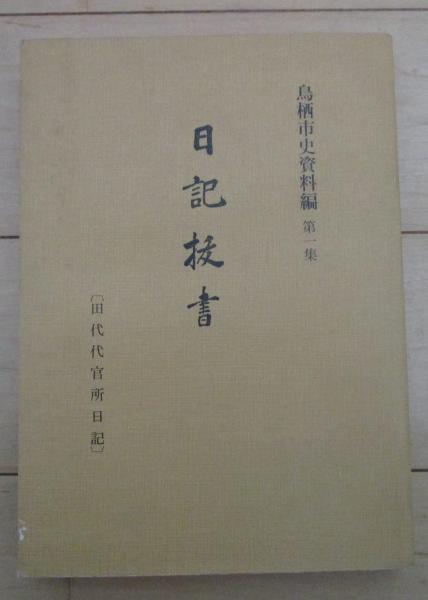 鳥栖市史資料編 第一集
日記抜書
〔田代代官所日記〕